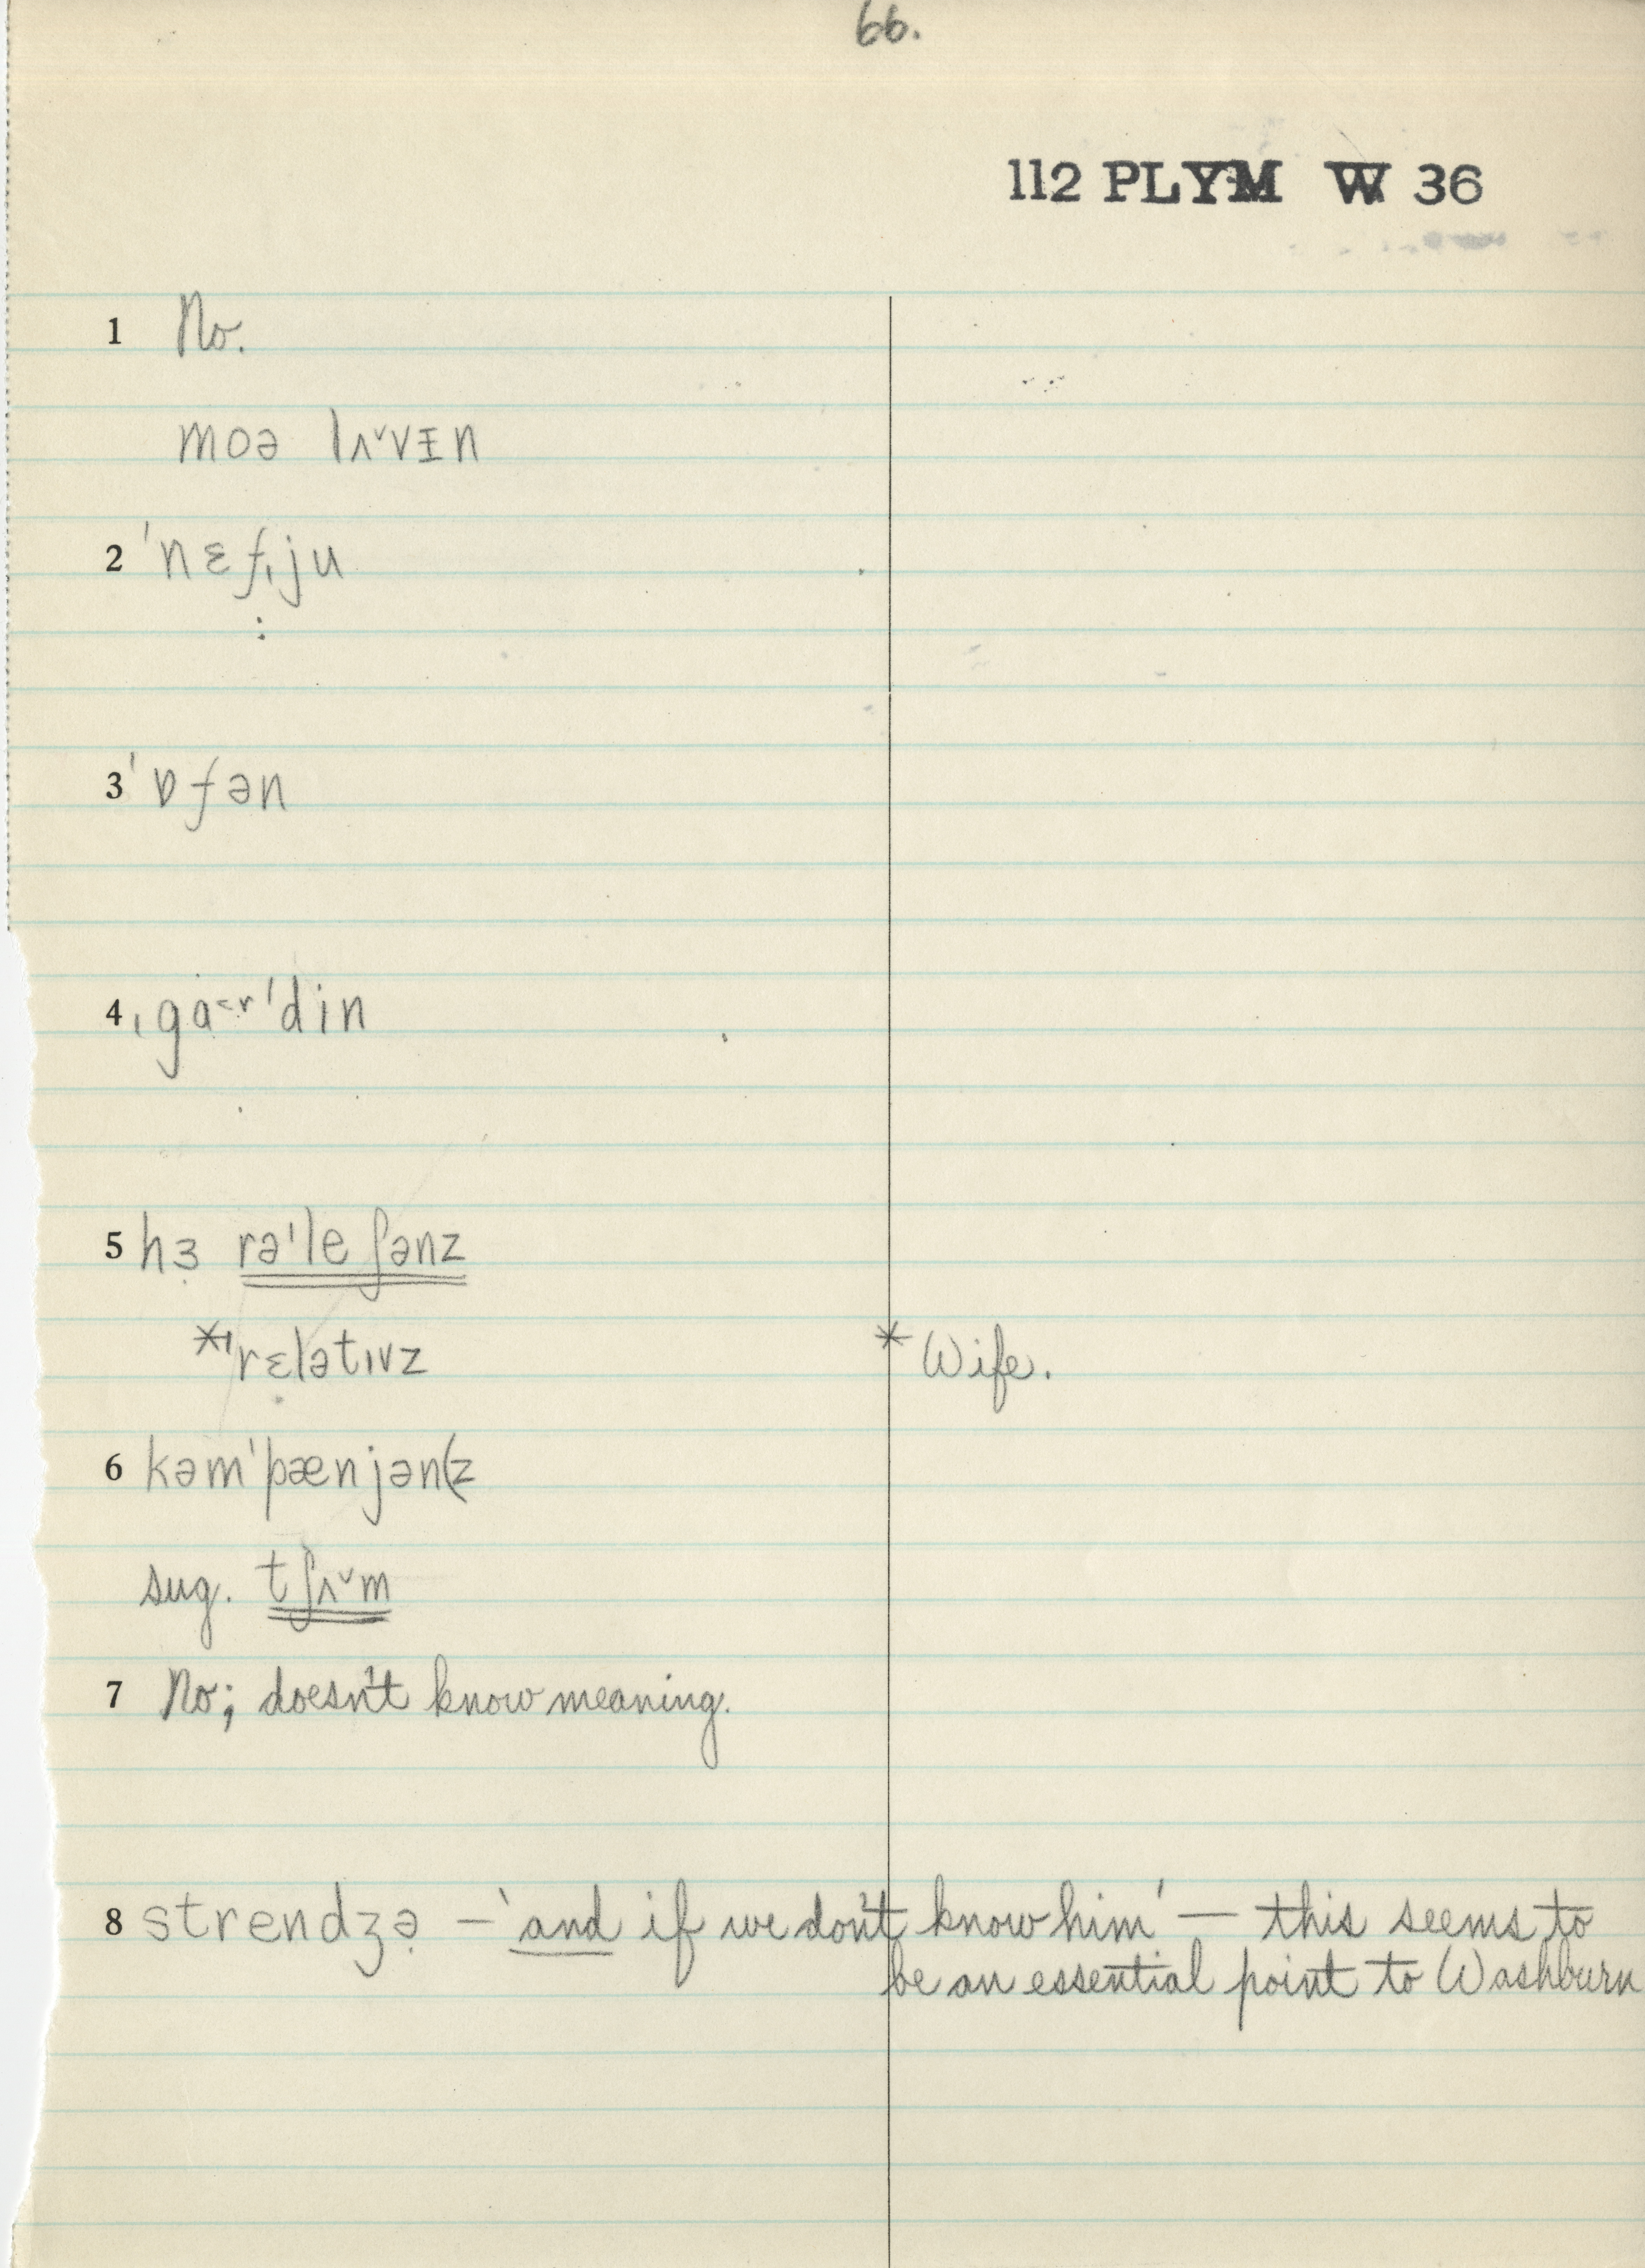 66.
112 PLYM W 36
1 No.
moə lʌ˅vɪn
2 ˈnɛfˌju
:
3 ˈɒfən
4 ˌgȧ˂ʳˈdin
5 hɜ̣ rəˈleʃənz
*ˈrɛlətɪvz * Wife.
6 kəmˈpænjən(z
sug. tʃʌ˅m
7 No; doesn't know meaning.
8 strendʒə̣ – 'and if we don't know him' – this seems to
be an essential point to Washburn